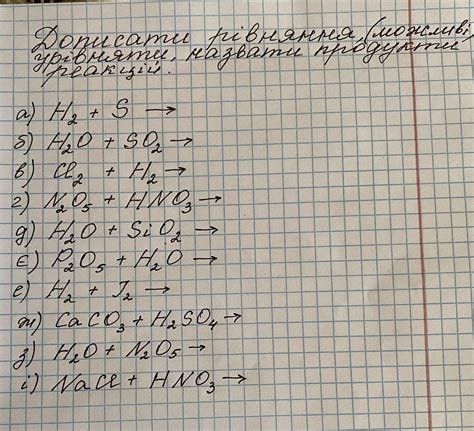 Дописати рівняння, (можливі)
урівняти, назвати продукти
реакцій.
а) H₂ + S →
б) H₂O + SO₂ →
в) Cl₂ + H₂ →
г) N₂O₅ + HNO₃ →
д) H₂O + SiO₂ →
є) P₂O₅ + H₂O →
е) H₂ + I₂ →
ж) CaCO₃ + H₂SO₄ →
з) H₂O + N₂O₅ →
і) NaCl + HNO₃ →